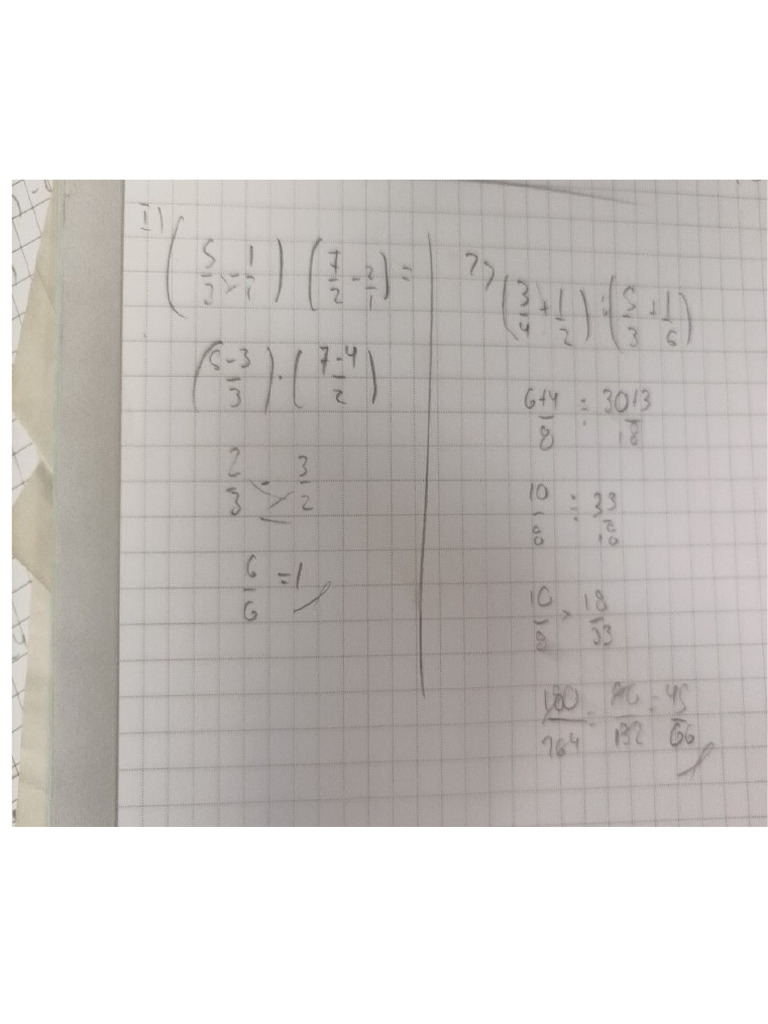 I) (5/3 - 1/1) (7/2 - 2/1) =
(5-3/3) · (7-4/2)
2/3 - 3/2
6/6 = 1
(3/4 + 1/2) : (5/3 + 1/6)
6+4/8 : 30+3/18
10/8 : 33/18
10/8 × 18/33
180/264 = 132 = 45/66